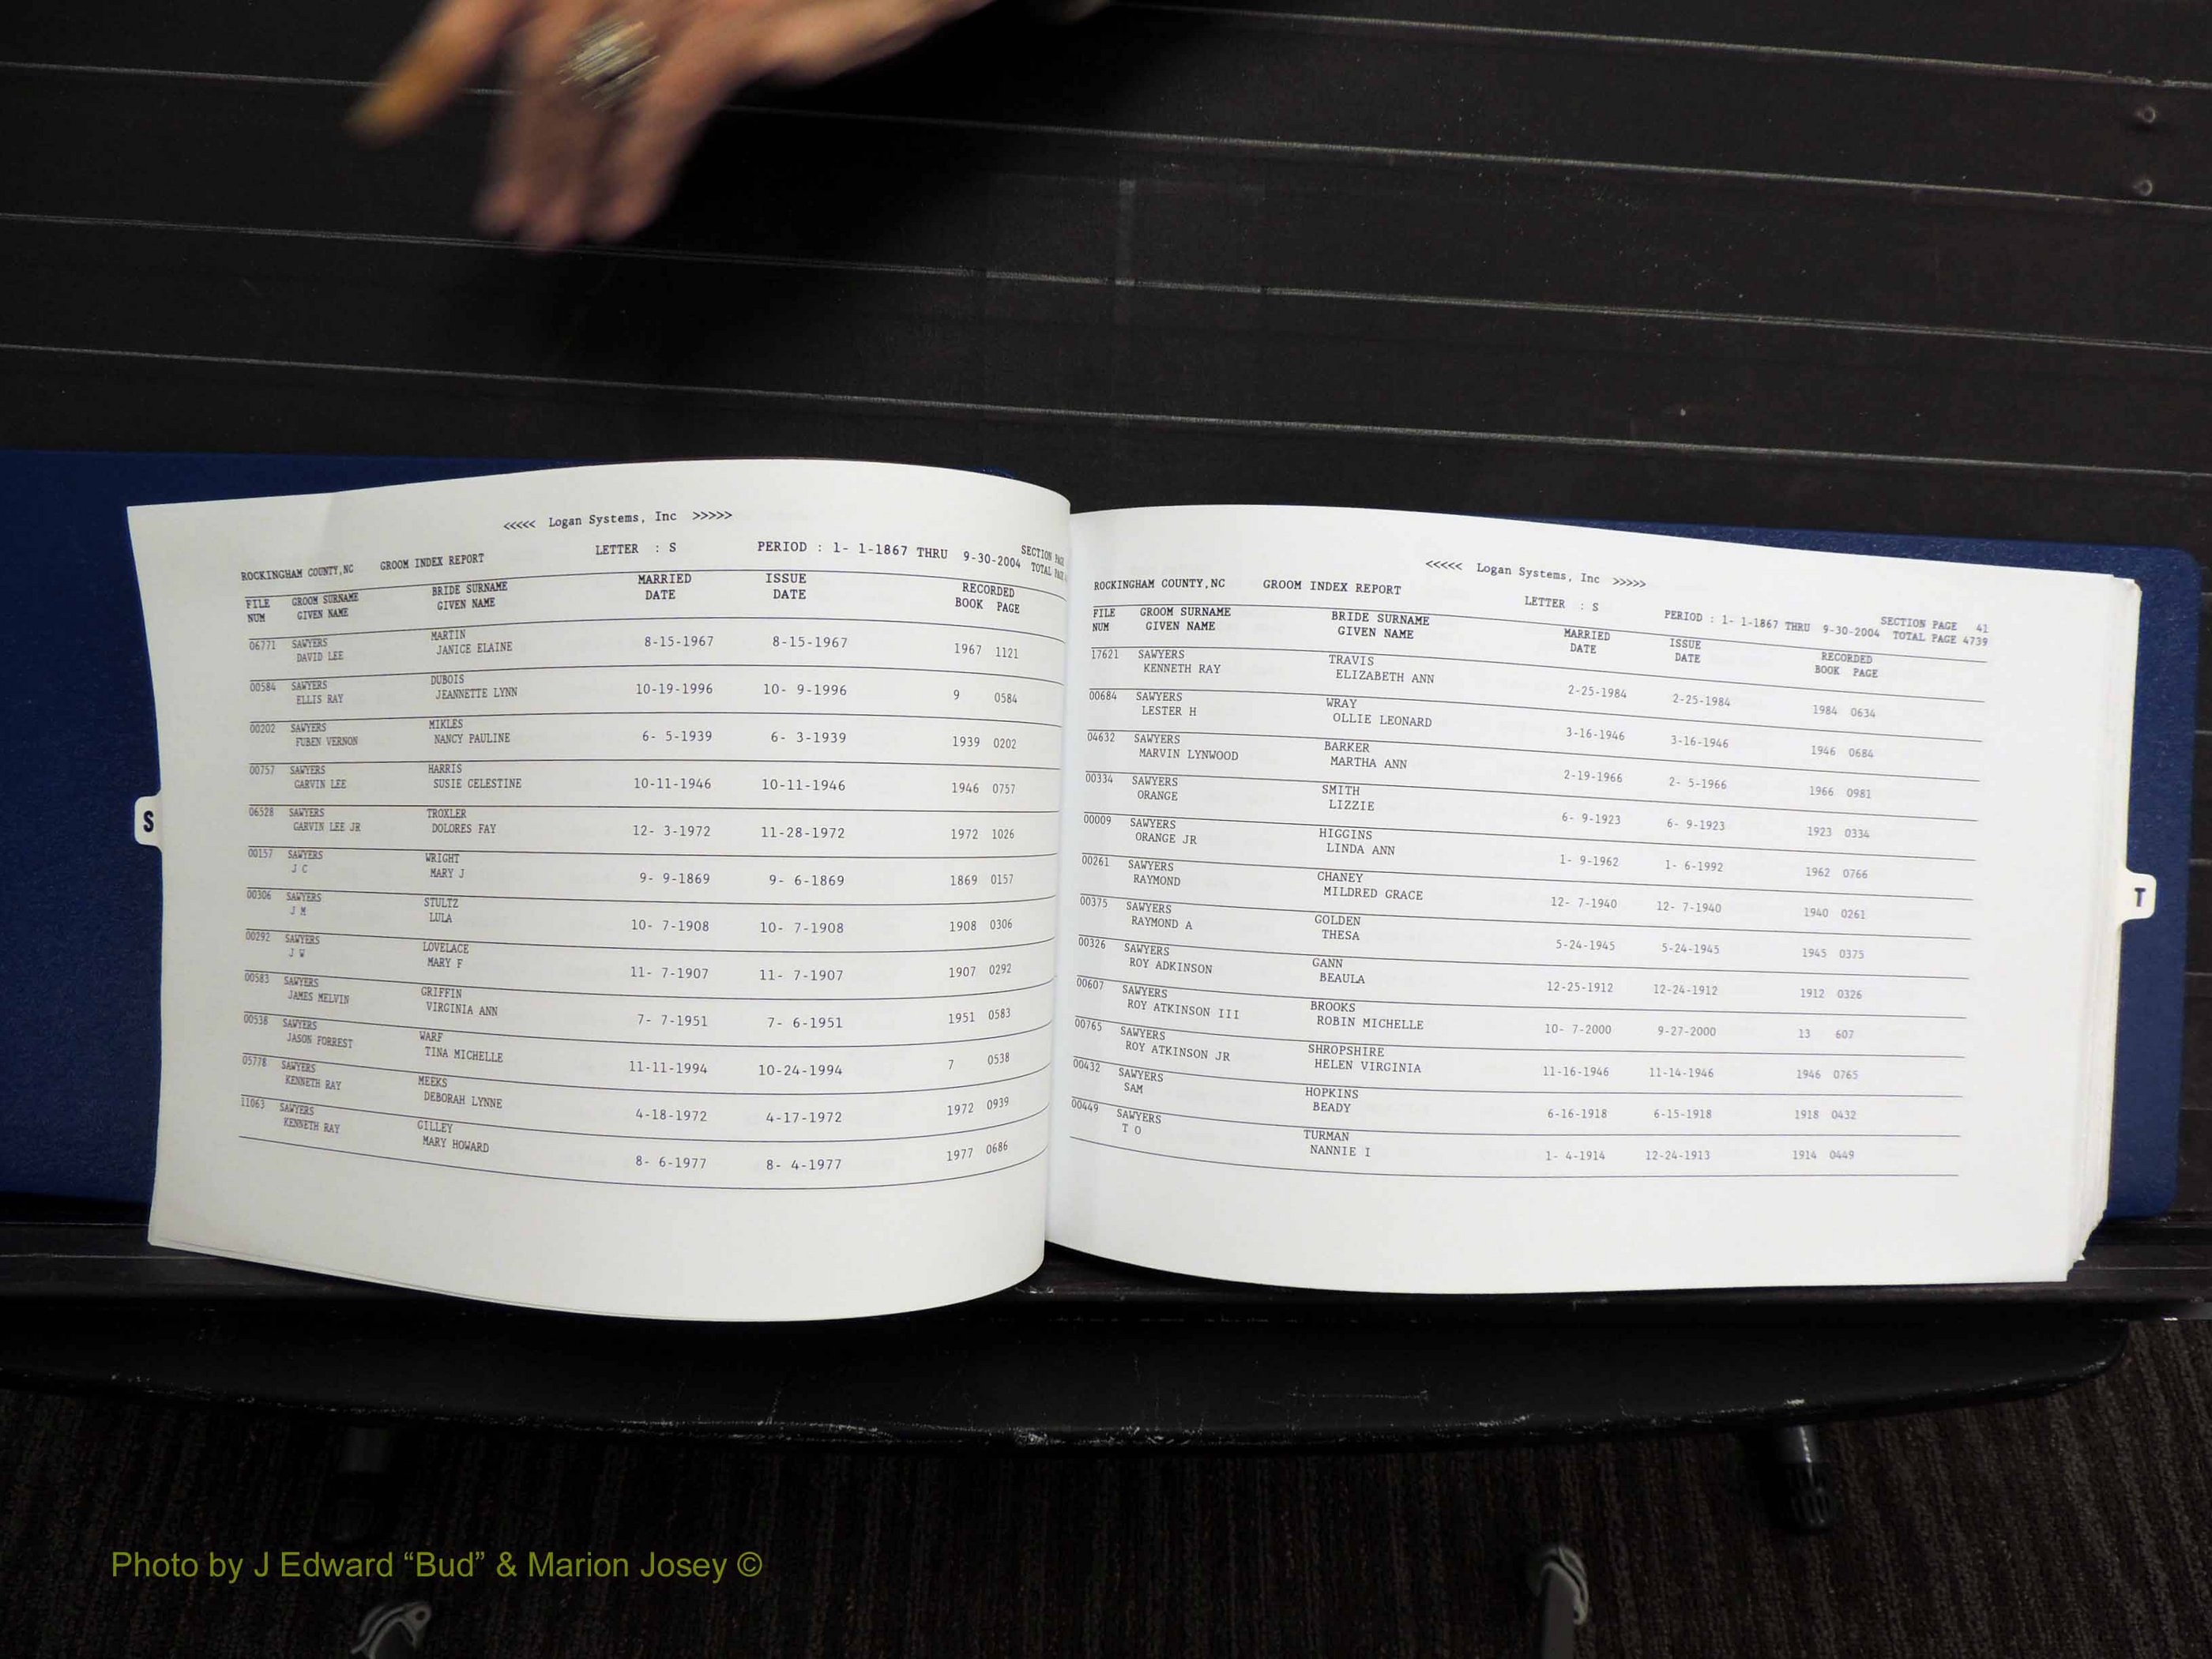 <<<<< Logan Systems, Inc >>>>>
ROCKINGHAM COUNTY,NC GROOM INDEX REPORT LETTER : S PERIOD : 1- 1-1867 THRU 9-30-2004 SECTION
TOTAL
FILE GROOM SURNAME BRIDE SURNAME MARRIED ISSUE RECORDED
NUM GIVEN NAME GIVEN NAME DATE DATE BOOK PAGE
06771 SAWYERS MARTIN 8-15-1967 8-15-1967 1967 1121
DAVID LEE JANICE ELAINE
00584 SAWYERS DUBOIS 10-19-1996 10- 9-1996 9 0584
ELLIS RAY JEANNETTE LYNN
00202 SAWYERS MIKLES 6- 5-1939 6- 3-1939 1939 0202
FUBEN VERNON NANCY PAULINE
00757 SAWYERS HARRIS 10-11-1946 10-11-1946 1946 0757
GARVIN LEE SUSIE CELESTINE
06528 SAWYERS TROXLER 12- 3-1972 11-28-1972 1972 1026
GARVIN LEE JR DOLORES FAY
00157 SAWYERS WRIGHT 9- 9-1869 9- 6-1869 1869 0157
J C MARY J
00306 SAWYERS STULTZ 10- 7-1908 10- 7-1908 1908 0306
J M LULA
00292 SAWYERS LOVELACE 11- 7-1907 11- 7-1907 1907 0292
J W MARY F
00583 SAWYERS GRIFFIN 7- 7-1951 7- 6-1951 1951 0583
JAMES MELVIN VIRGINIA ANN
00538 SAWYERS WARF 11-11-1994 10-24-1994 7 0538
JASON FORREST TINA MICHELLE
05778 SAWYERS MEEKS 4-18-1972 4-17-1972 1972 0939
KENNETH RAY DEBORAH LYNNE
11063 SAWYERS GILLEY 8- 6-1977 8- 4-1977 1977 0686
KENNETH RAY MARY HOWARD
S
<<<<< Logan Systems, Inc >>>>>
ROCKINGHAM COUNTY,NC GROOM INDEX REPORT LETTER : S PERIOD : 1- 1-1867 THRU 9-30-2004 SECTION PAGE 41
TOTAL PAGE 4739
FILE GROOM SURNAME BRIDE SURNAME MARRIED ISSUE RECORDED
NUM GIVEN NAME GIVEN NAME DATE DATE BOOK PAGE
17621 SAWYERS TRAVIS 2-25-1984 2-25-1984 1984 0634
KENNETH RAY ELIZABETH ANN
00684 SAWYERS WRAY 3-16-1946 3-16-1946 1946 0684
LESTER H OLLIE LEONARD
04632 SAWYERS BARKER 2-19-1966 2- 5-1966 1966 0981
MARVIN LYNWOOD MARTHA ANN
00334 SAWYERS SMITH 6- 9-1923 6- 9-1923 1923 0334
ORANGE LIZZIE
00009 SAWYERS HIGGINS 1- 9-1962 1- 6-1992 1962 0766
ORANGE JR LINDA ANN
00261 SAWYERS CHANEY 12- 7-1940 12- 7-1940 1940 0261
RAYMOND MILDRED GRACE
00375 SAWYERS GOLDEN 5-24-1945 5-24-1945 1945 0375
RAYMOND A THESA
00326 SAWYERS GANN 12-25-1912 12-24-1912 1912 0326
ROY ADKINSON BEAULA
00607 SAWYERS BROOKS 10- 7-2000 9-27-2000 13 607
ROY ATKINSON III ROBIN MICHELLE
00765 SAWYERS SHROPSHIRE 11-16-1946 11-14-1946 1946 0765
ROY ATKINSON JR HELEN VIRGINIA
00432 SAWYERS HOPKINS 6-16-1918 6-15-1918 1918 0432
SAM BEADY
00449 SAWYERS TURMAN 1- 4-1914 12-24-1913 1914 0449
T O NANNIE I
T
Photo by J Edward “Bud” & Marion Josey ©